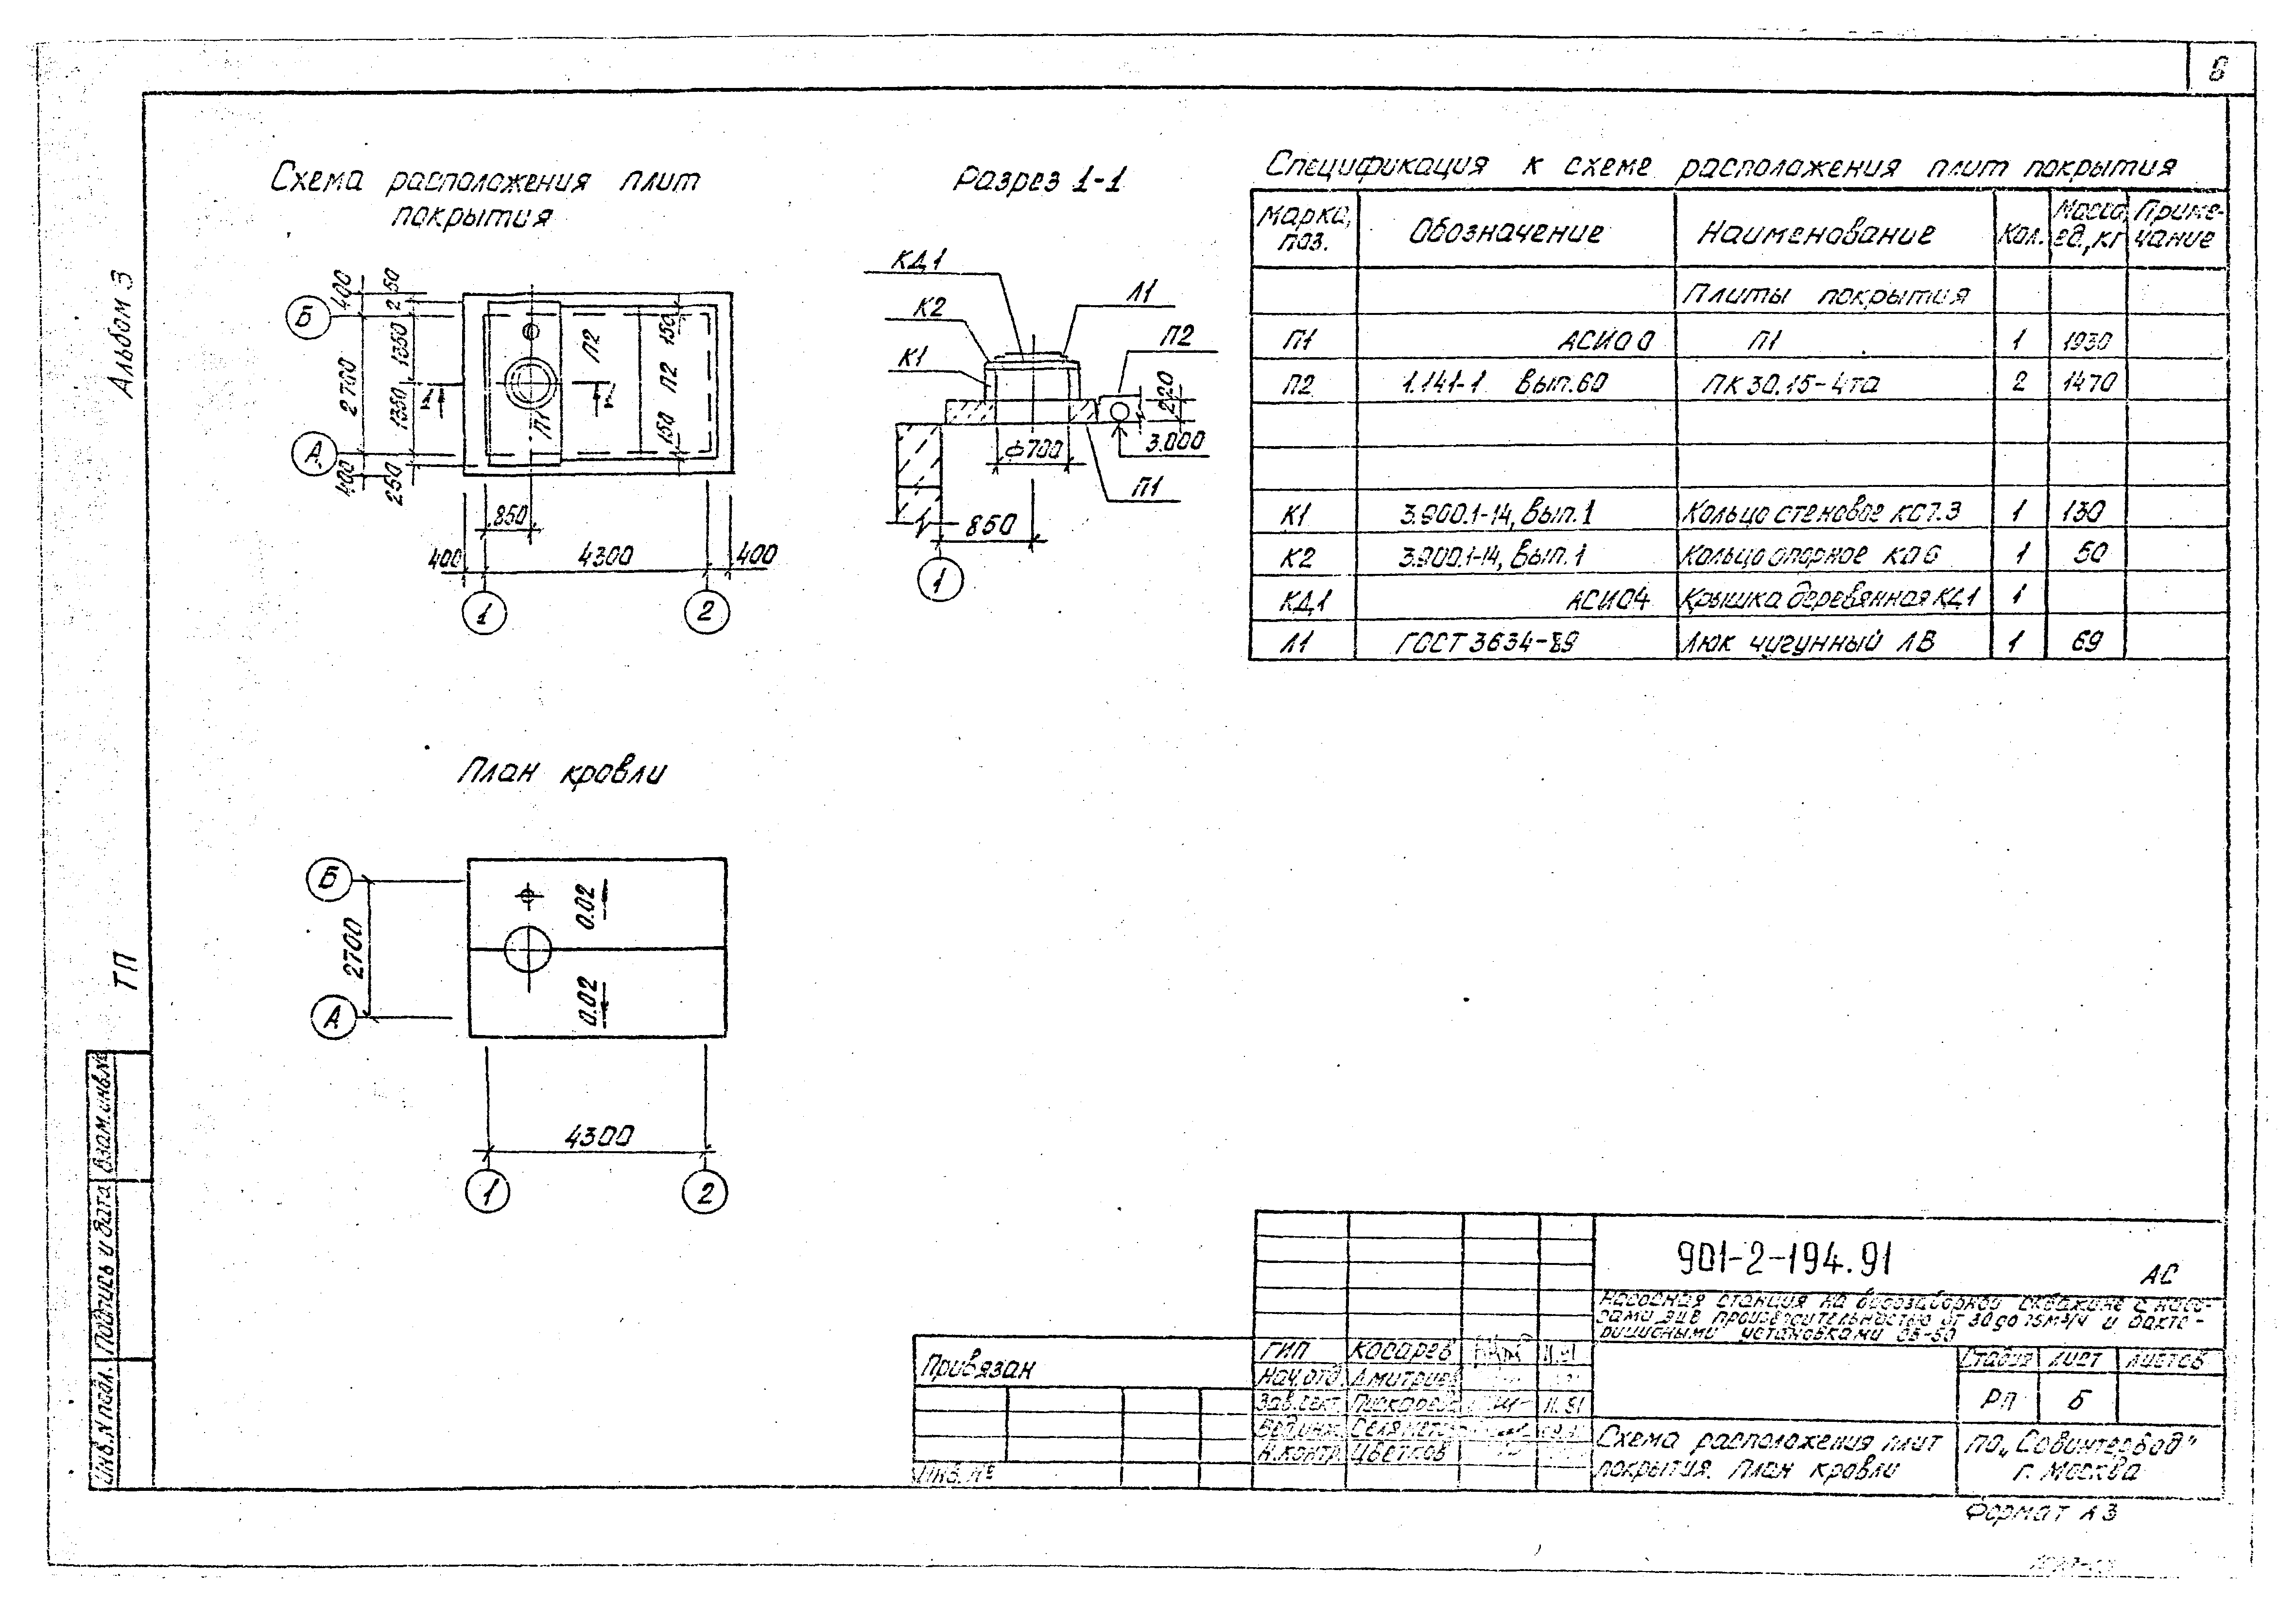 8
Альбом 3
ТП
Схема расположения плит
покрытия
Б
А
400
2700
400
250
1350
1350
250
П1
П2
П2
150
150
1
1
850
400
4300
400
1
2
Разрез 1-1
КД1
К2
К1
Л1
П2
220
3.000
ф700
П1
850
1
Спецификация к схеме расположения плит покрытия
Марка, поз. Обозначение Наименование Кол. Масса ед, кг Приме-чание
Плиты покрытия
П1 АСИ00 П1 1 1930
П2 1.141-1 вып.60 ПК 30.15-4та 2 1470
К1 3.900.1-14, вып.1 Кольцо стеновое КС7.3 1 130
К2 3.900.1-14, вып.1 Кольцо опорное КО6 1 50
КД1 АСИ04 Крышка деревянная КД1 1
Л1 ГОСТ 3634-89 Люк чугунный ЛВ 1 69
План кровли
Б
А
2700
0.02
0.02
4300
1
2
Взам.инв.№
Подпись и дата
Инв.N подл.
Привязан
Инв. №
901-2-194.91
АС
Насосная станция на водозаборной скважине с насо-
сами ЭЦВ производительностью от 30 до 75м³/ч и бакте-
рицидными установками ОВ-50
ГИП Косарев 11.91
Нач.отд. Дмитриев
Зав.сект. 11.91
Вед.инж.
Н.контр. Цветков
Стадия Лист Листов
РП 6
Схема расположения плит
покрытия. План кровли
ПО „Совинтервод"
г. Москва
Формат А3